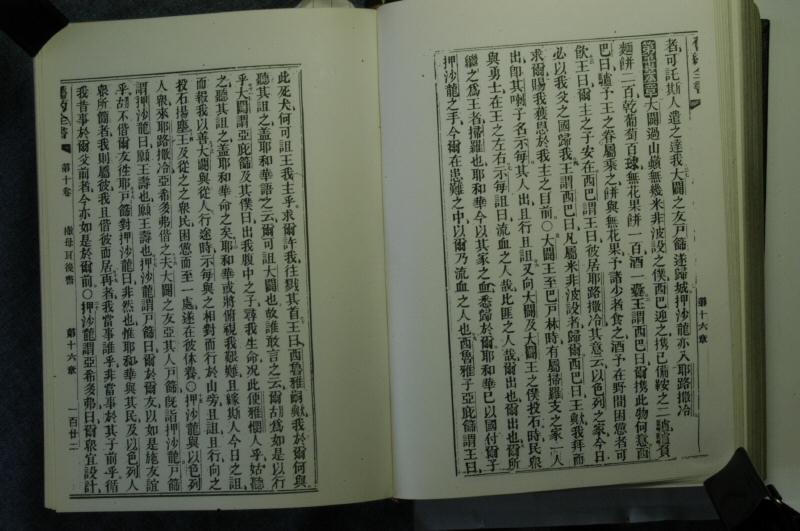 第十六章
者可託斯人遣之達我大闢之友戶篩遂歸城押沙龍亦入耶路撒冷
第十六章大闢過山巔無幾米非波設之僕西巴迎之携已備鞍之二驢負
麵餅二百乾葡萄百球無花果餅一百酒一王謂西巴曰爾携此物何意西
巴曰驢予王之眷屬乘之餅與無花果予諸少者食之酒予在野間困憊者可
飲王曰爾主之子安在西巴謂王曰彼居耶路撒冷其意云以色列之家今日
必以我父之國歸我王謂西巴曰凡屬米非波設者歸爾西巴曰王歟我拜而
求爾賜我獲恩於我主之目前○大闢王至巴戶林時有屬掃羅支之家一人
出卽其喇子名示每其人出且行且詛又向大闢及大闢王之僕投石時民衆
與勇士在王之左右示每詛曰流血之人哉此匪之人哉爾出也爾出也爾所
繼之爲王者掃羅也耶和華今以其家之血悉歸於爾耶和華已以國付爾子
押沙龍之手今爾在患難之中以爾乃流血之人也西魯雅子亞庇篩謂王曰
此死犬何可詛王我主乎求爾許我往戮其首王曰西魯雅嗣歟我於爾何與
聽其詛之蓋耶和華語之云爾可詛大闢也故誰敢言之云爾胡爲如是以行
乎大闢謂亞庇篩及其僕曰出我腹中之子尋我生命况此便雅憫人乎姑聽
之聽其詛之蓋耶和華命之矣耶和華或將俯視我艱難且緣斯人今日之詛
而報我以善大闢與從人行途時示每與之相對而行於山旁且詛且行向之
投石揚塵王及從之之衆民困憊而至一處遂在彼休養○押沙龍與以色列
人衆來耶路撒冷亞希多弗偕之夫大闢之友亞其人戶篩旣詣押沙龍戶篩
謂押沙龍曰願王壽也願王壽也押沙龍謂戶篩曰爾於爾友以如是施友誼
乎胡不偕爾友往耶戶篩對押沙龍曰非然也惟耶和華與其民及以色列人
衆所簡者我則屬彼我且偕彼而居再者我當事誰乎非當事於其子前乎循
我昔事於爾父前者今亦如是於爾前○押沙龍謂亞希多弗曰爾衆宜設計
舊約全書
第十卷
撒母耳後書
第十六章
一百廿二